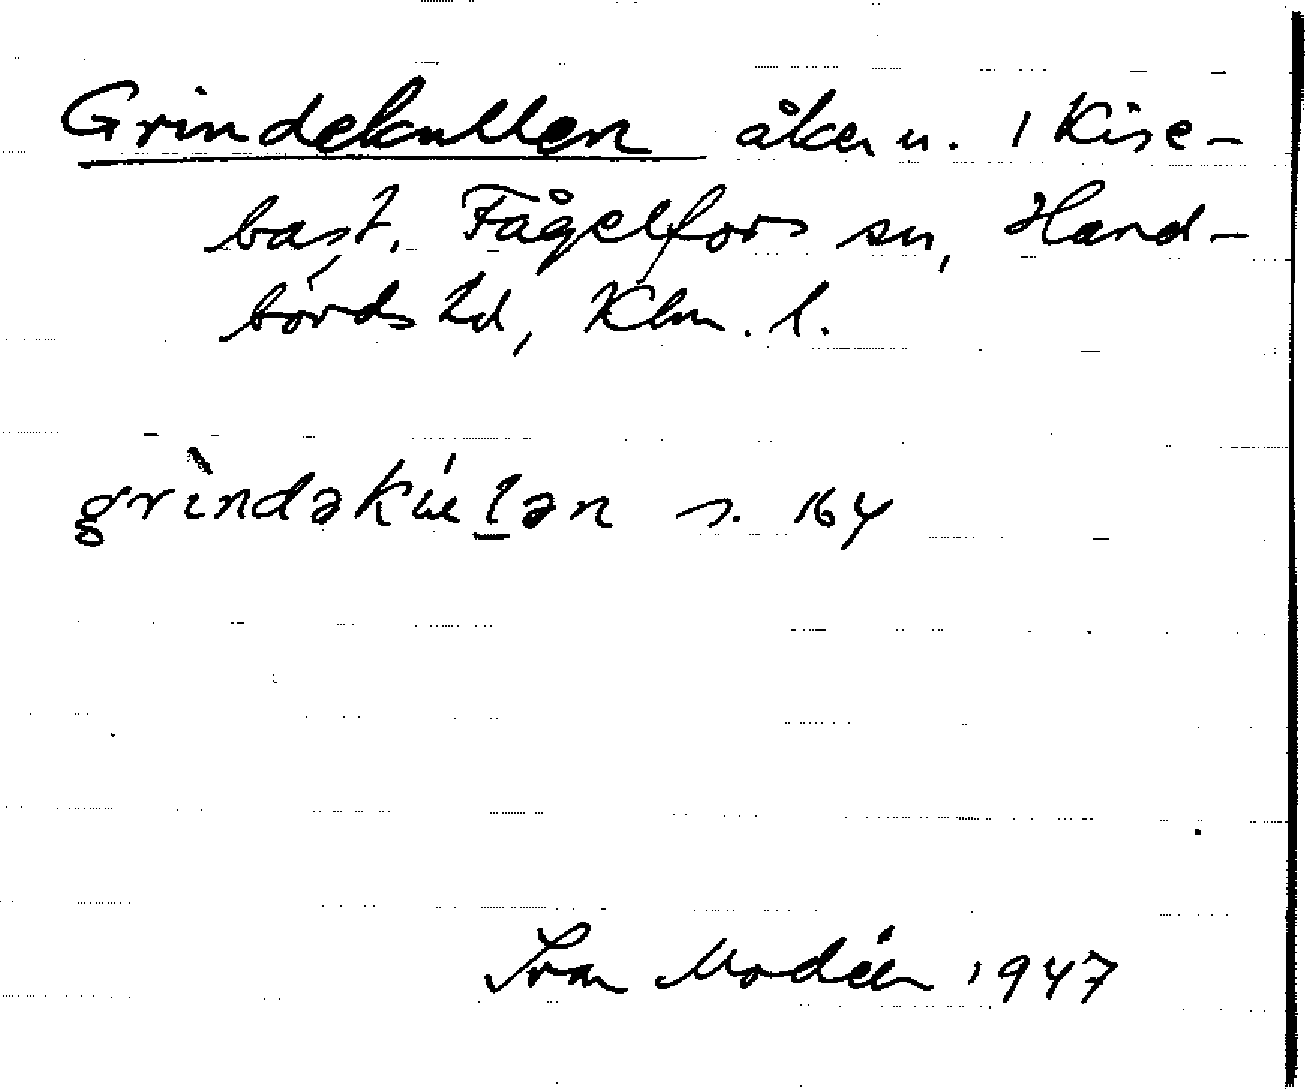 Grindekullen åker n. 1 Kise-
bast. Fågelfors sn, Hand-
börds hd, Klm. l.
grìndəkúl̲ən s. 164
Ivan Modéer 1947